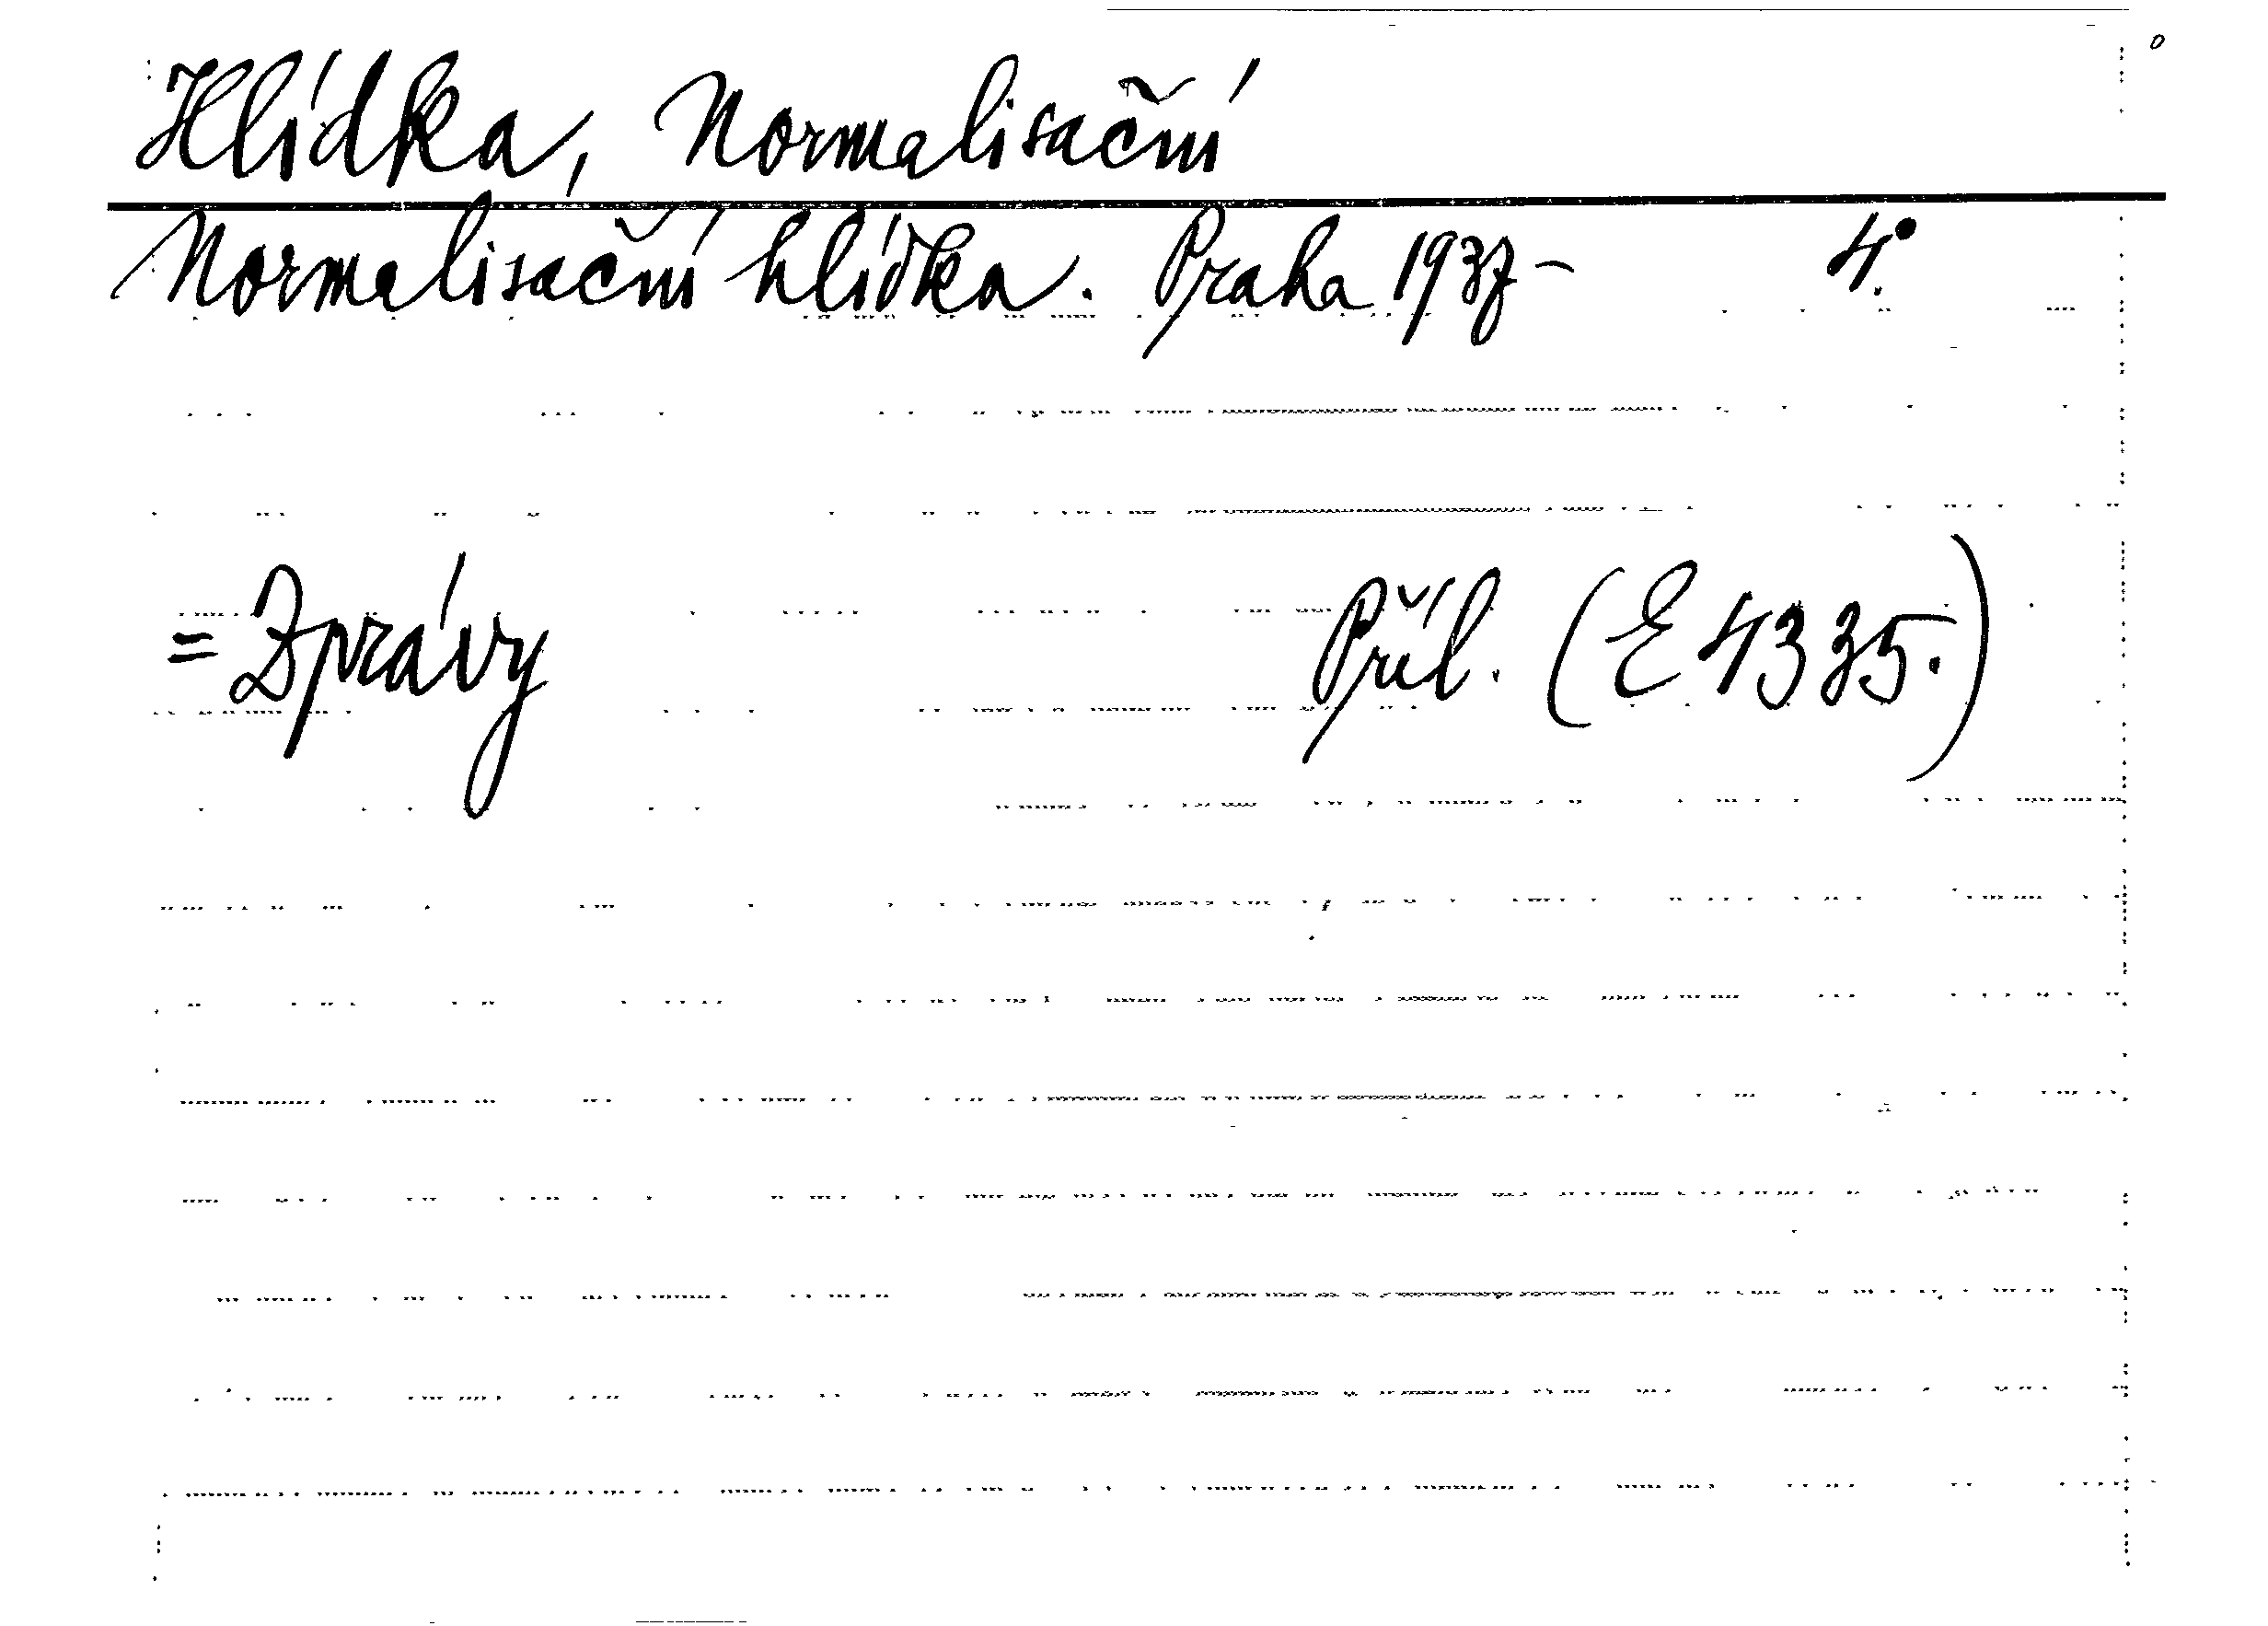 Hlídka, Normalisační
Normalisační hlídka. Praha 1937- 4°.
= Zprávy Příl. (E 4335.)